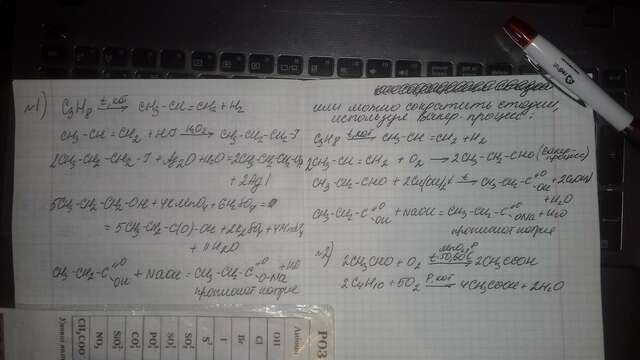 №1) C₃H₈ t, кат → CH₃-CH=CH₂ + H₂
CH₃-CH=CH₂ + HI H₂O₂ → CH₃-CH₂-CH₂-I
2CH₃-CH₂-CH₂-I + Ag₂O + H₂O = 2CH₃CH₂CH₂OH
+ 2AgI
5CH₃-CH₂-CH₂-OH + 4KMnO₄ + 6H₂SO₄ =
= 5CH₃-CH₂-C(O)-OH + 2K₂SO₄ + 4MnSO₄
+ 11H₂O
CH₃-CH₂-C=O OH + NaOH = CH₃-CH₂-C=O O-Na + H₂O
пропионат натрия
или можно сократить стадии,
используя вакер-процесс:
C₃H₈ t, кат → CH₃-CH=CH₂ + H₂
2CH₃-CH=CH₂ + O₂ → 2CH₃-CH₂-CHO (вакер-
процесс)
CH₃-CH₂-CHO + 2Cu(OH)₂ t → CH₃-CH₂-C=O OH + 2CuOH
+ H₂O
CH₃-CH₂-C=O OH + NaOH = CH₃-CH₂-C=O ONa + H₂O
пропионат натрия
№2) 2CH₃CHO + O₂ → 2CH₃COOH
2C₄H₁₀ + 5O₂ P, кат → 4CH₃COOH + 2H₂O
РОЗ
OH
Cl
Br
I
S
SO₃
SO₄
PO₄
CO₃
SiO₃
NO₃
CH₃COO